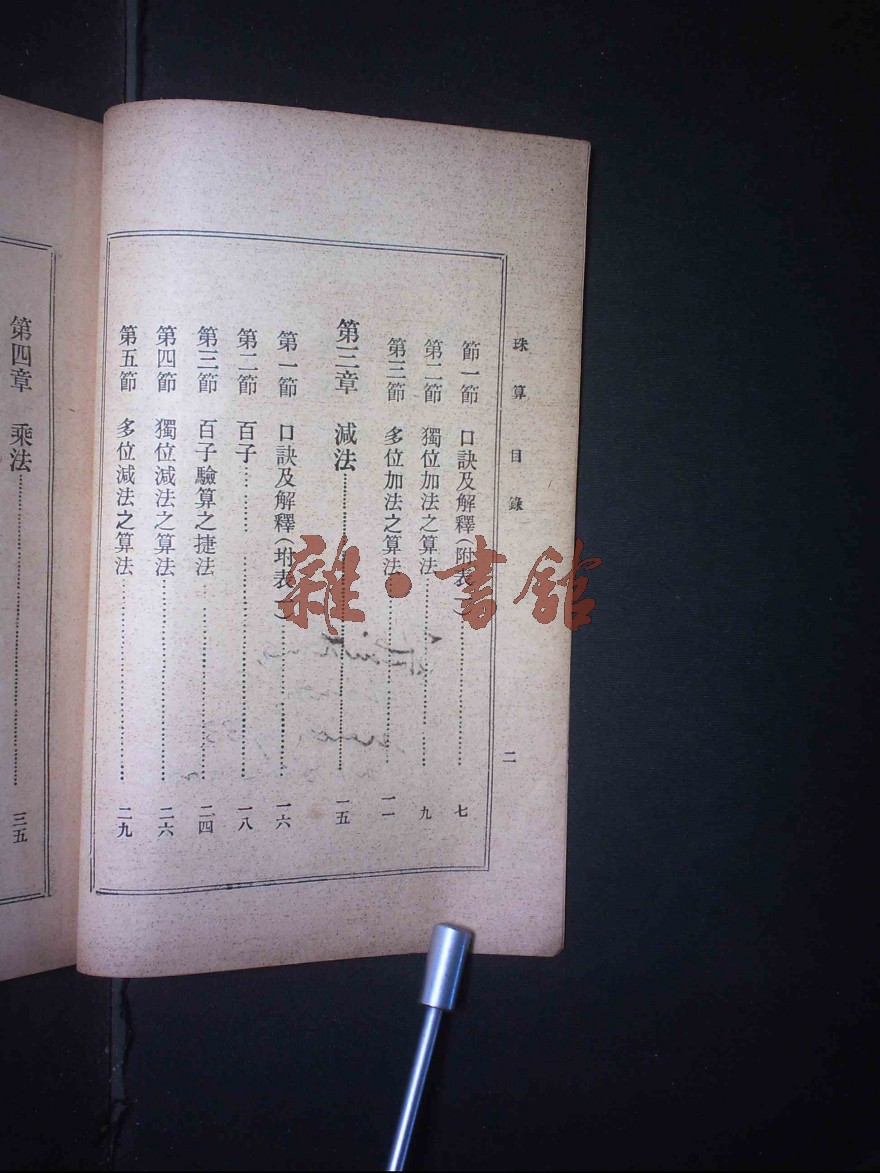 珠算目錄
二
節一節 口訣及解釋(附表一)……七
第二節 獨位加法之算法……九
第三節 多位加法之算法……一一
第三章 減法……一五
第一節 口訣及解釋(坿表一)……一六
第二節 百子……一八
第三節 百子驗算之捷法……二四
第四節 獨位減法之算法……二六
第五節 多位減法之算法……二九
第四章 乘法……三五
雜·書館